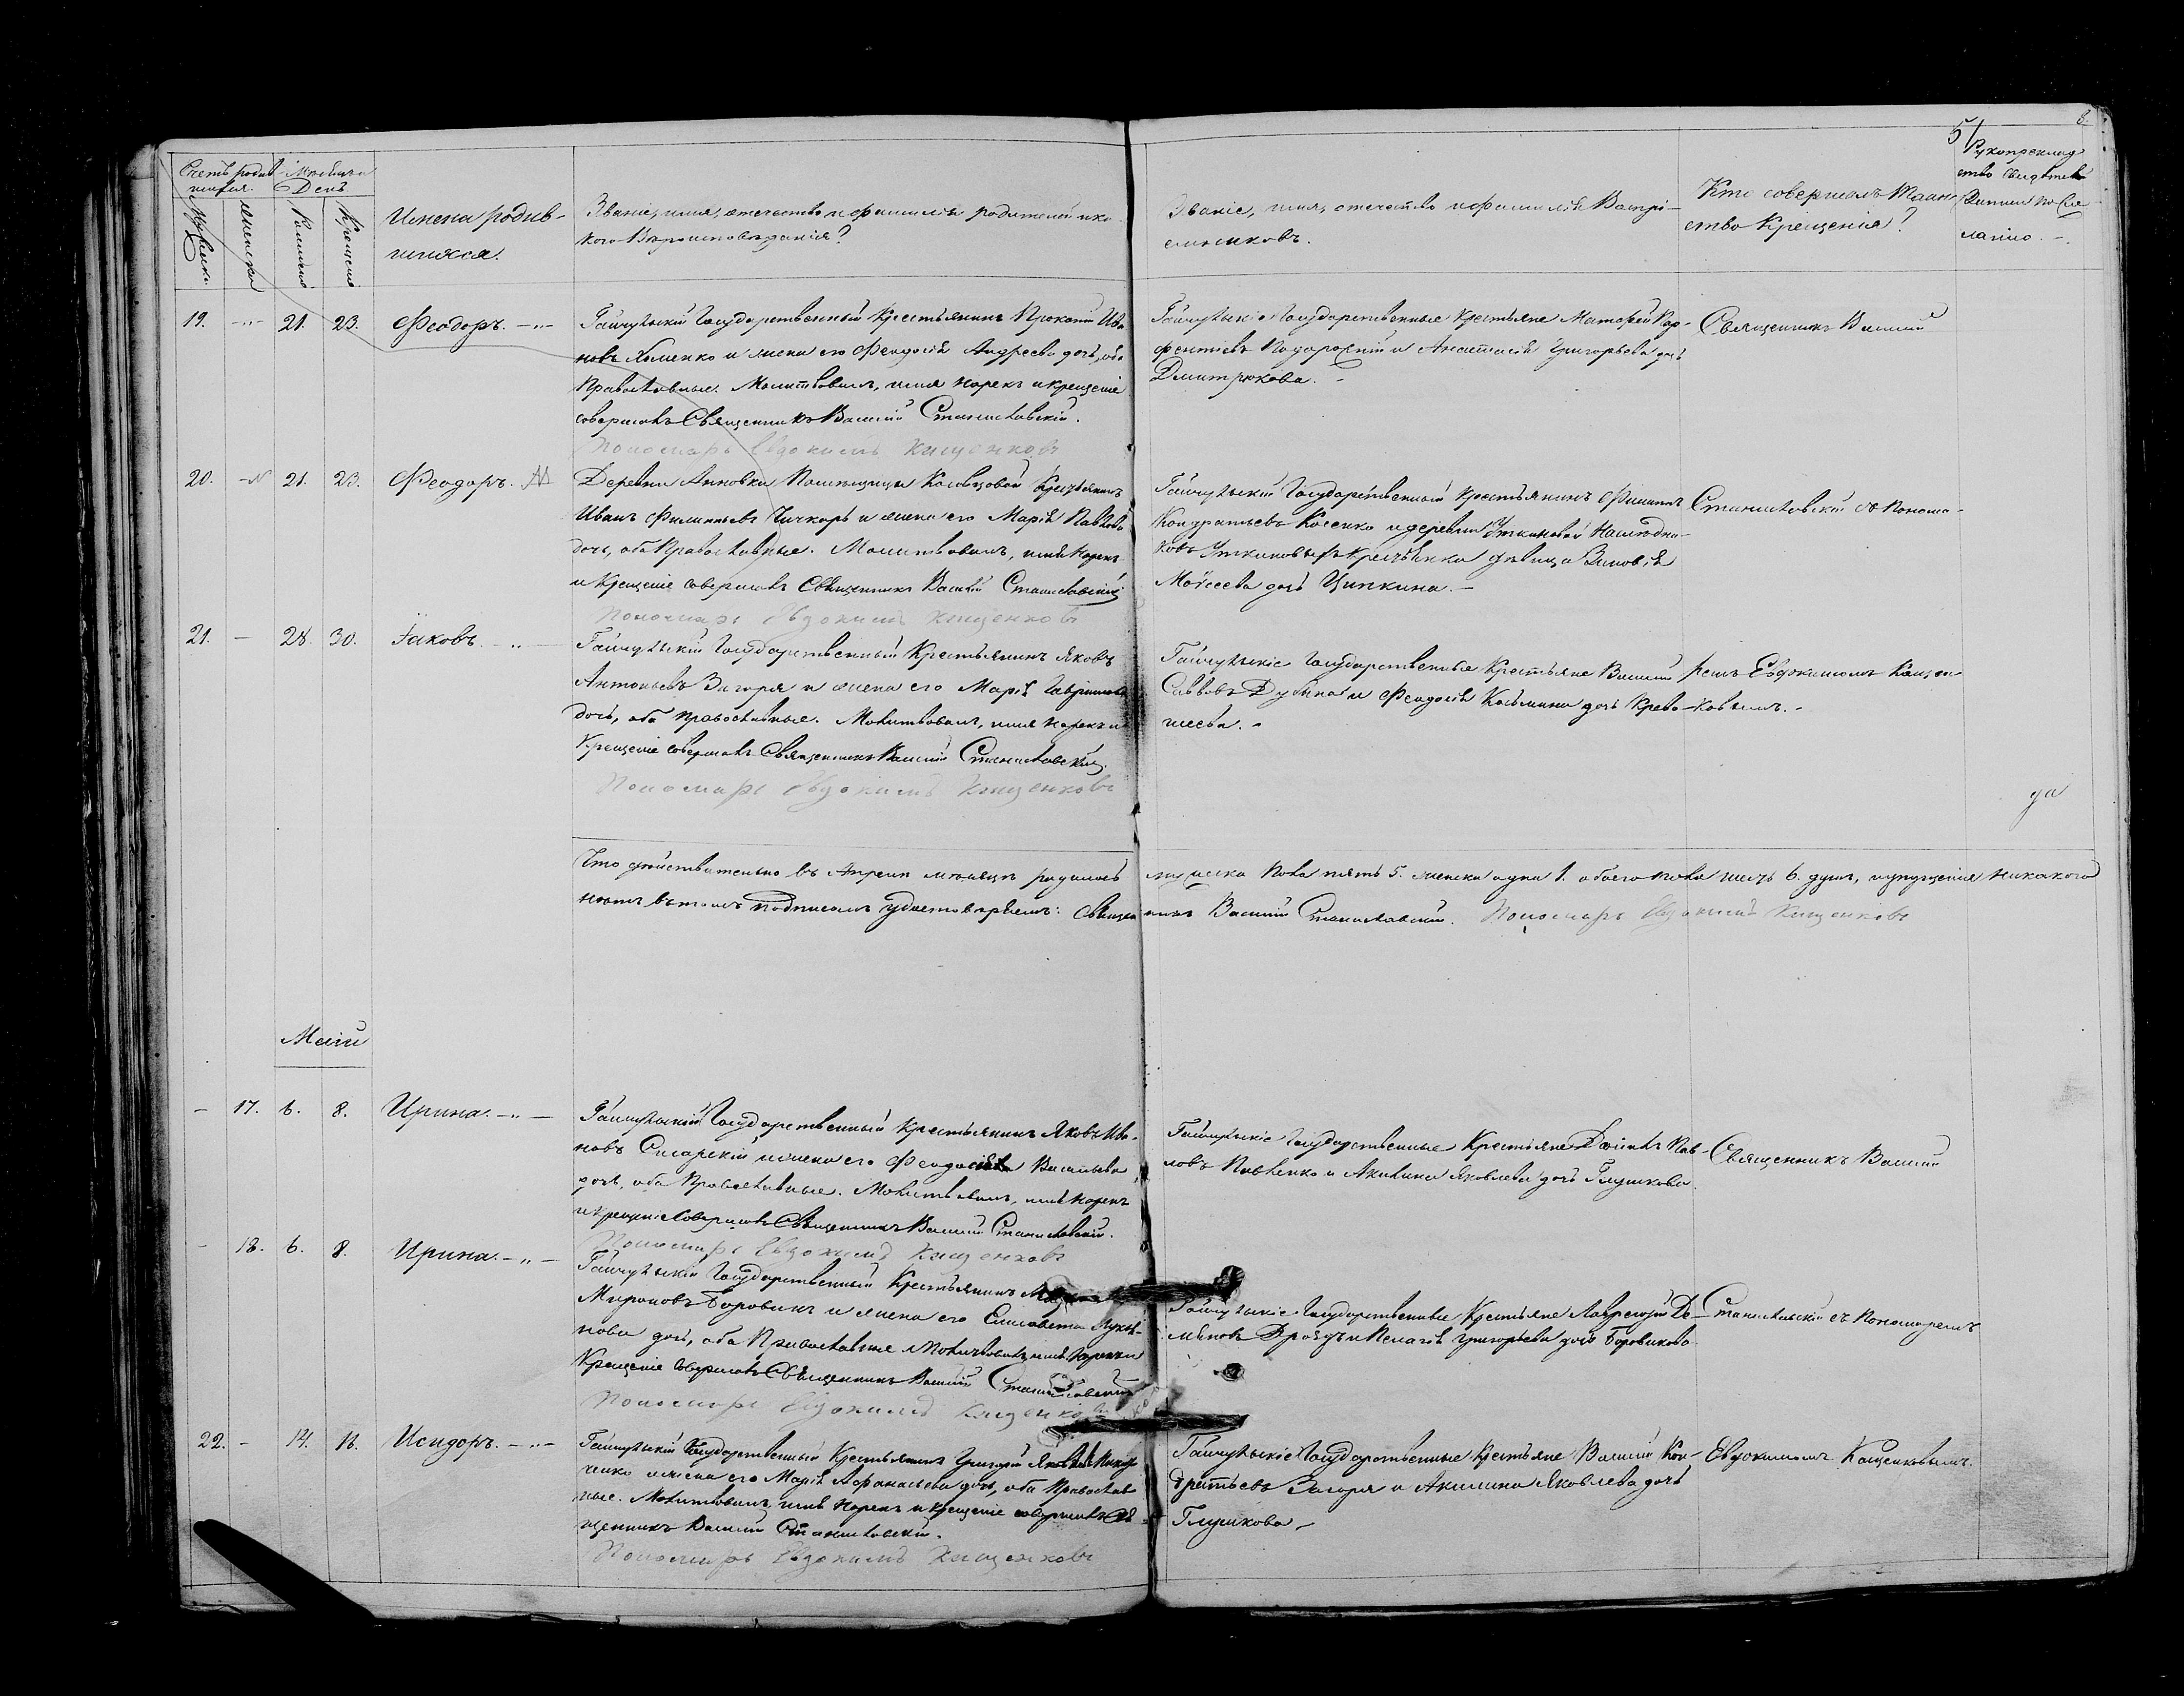 5/
8.
Счетъ родив-
шихся.
Мѣсяцъ и
День
Мужеска
Женска
Рожденія
Крещенія
Имена родив-
шихся.
Званіе, имя, отечество и фамилія родителей и ка-
кого Вѣроисповѣданія?
Званіе, имя, отечество и фамилія Воспрі-
емниковъ.
Кто совершалъ Таин-
ство Крещенія?
Рукоприклад
ство свидѣтелей
записи по же-
ланію. -
19. -"- 21. 23. Феодоръ. -"-
Гайчульскій Государственный Крестьянинъ Прокопій Ива
новъ Хоменко и жена его Феодосія Андреева дочь, оба
Православные. Молитвовалъ, имя нарекъ и крещеніе
совершалъ Священникъ Василій Станиславскій.
Пономарь Евдокимъ Кащенковъ
Гайчульскіе Государственные Крестьяне Матфей Кар-
фентіевъ Подорожній и Анастасія Григорьева дочь
Дмитрюкова. -
Священникъ Василій
20. 21. 23. Феодоръ.
Деревни Анновки Помѣщицы Крестьянинъ
Иванъ Филипьевъ Чичкарь и жена его Марія Павлова
дочь, оба Православные. Молитвовалъ, имя нарекъ
и Крещеніе совершалъ Священникъ Василій Станиславскій
Пономарь Евдокимъ Кащенковъ
Гайчульскій Государственный Крестьянинъ Филиппъ
Кондратьевъ Косенко и деревни Уткиновой Наслѣдни-
ковъ Уткиновыхъ Крестьянка дѣвица Зиновія
Моисеева дочь Ципкина. -
Станиславскій съ Понома-
21. - 28. 30. Іаковъ. -"-
Гайчульскій Государственный Крестьянинъ Яковъ
Антоньевъ Загоря и жена его Марія Гавріилова
дочь, оба православные. Молитвовалъ, имя нарекъ и
Крещеніе совершалъ Священникъ Василій Станиславскій.
Пономарь Евдокимъ Кащенковъ
Гайчульскіе Государственные Крестьяне Василій
Саввовъ Дубина и Феодосія Косьмина дочь Криво-
шеева. -
ремъ Евдокимомъ Кащен-
ковымъ. -
да
Что дѣйствительно въ Апрелѣ мѣсяцѣ родилось мужеска пола пять 5. женска одна 1. обоего пола шесть 6. душъ, и упущенія никакого
нѣтъ въ томъ подписомъ удостовѣряемъ: Священникъ Василій Станиславскій. Пономарь Евдокимъ Кащенковъ
Маій
- 17. 6. 8. Ирина. -"-
Гайчульскій Государственный Крестьянинъ Яковъ Ива-
новъ Сисарскій и жена его Феодосія Васильева
дочь, оба Православные. Молитвовалъ, имя нарекъ
и крещеніе совершалъ Священникъ Василій Станиславскій.
Пономарь Евдокимъ Кащенковъ
Гайчульскіе Государственные Крестьяне Даніилъ Пав-
ловъ Павленко и Акилина Яковлева дочь Глушкова.
Священникъ Василій
- 18. 6. 8. Ирина. -"-
Гайчульскій Государственный Крестьянинъ
Мироновъ Боровикъ и жена его Елисавета Лукья-
нова дочь, оба Православные. Молитвовалъ, имя нарекъ и
Крещеніе совершалъ Священникъ Василій Станиславскій
Пономарь Евдокимъ Кащенковъ
Гайчульскіе Государственные Крестьяне Лаврентій Де-
мьяновъ Дроздъ и Пелагія Григорьева дочь Боровикова
Станиславскій съ Пономаремъ
22. - 14. 16. Исидоръ. -"-
Гайчульскій Государственный Крестьянинъ Григорій Яковлевъ
ченко и жена его Марія Афанасьева дочь, оба Православ
ные. Молитвовалъ, имя нарекъ и крещеніе совершалъ Свя
щенникъ Василій Станиславскій.
Пономарь Евдокимъ Кащенковъ
Гайчульскіе Государственные Крестьяне Василій Кон-
дратьевъ Загоря и Акилина Яковлева дочь
Глушкова. -
Евдокимомъ Кащенковымъ.